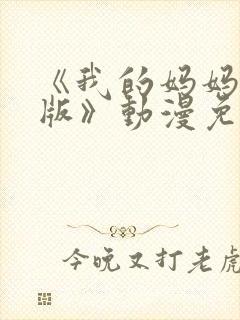 《我的妈妈
版》動漫免
今晚又打老虎